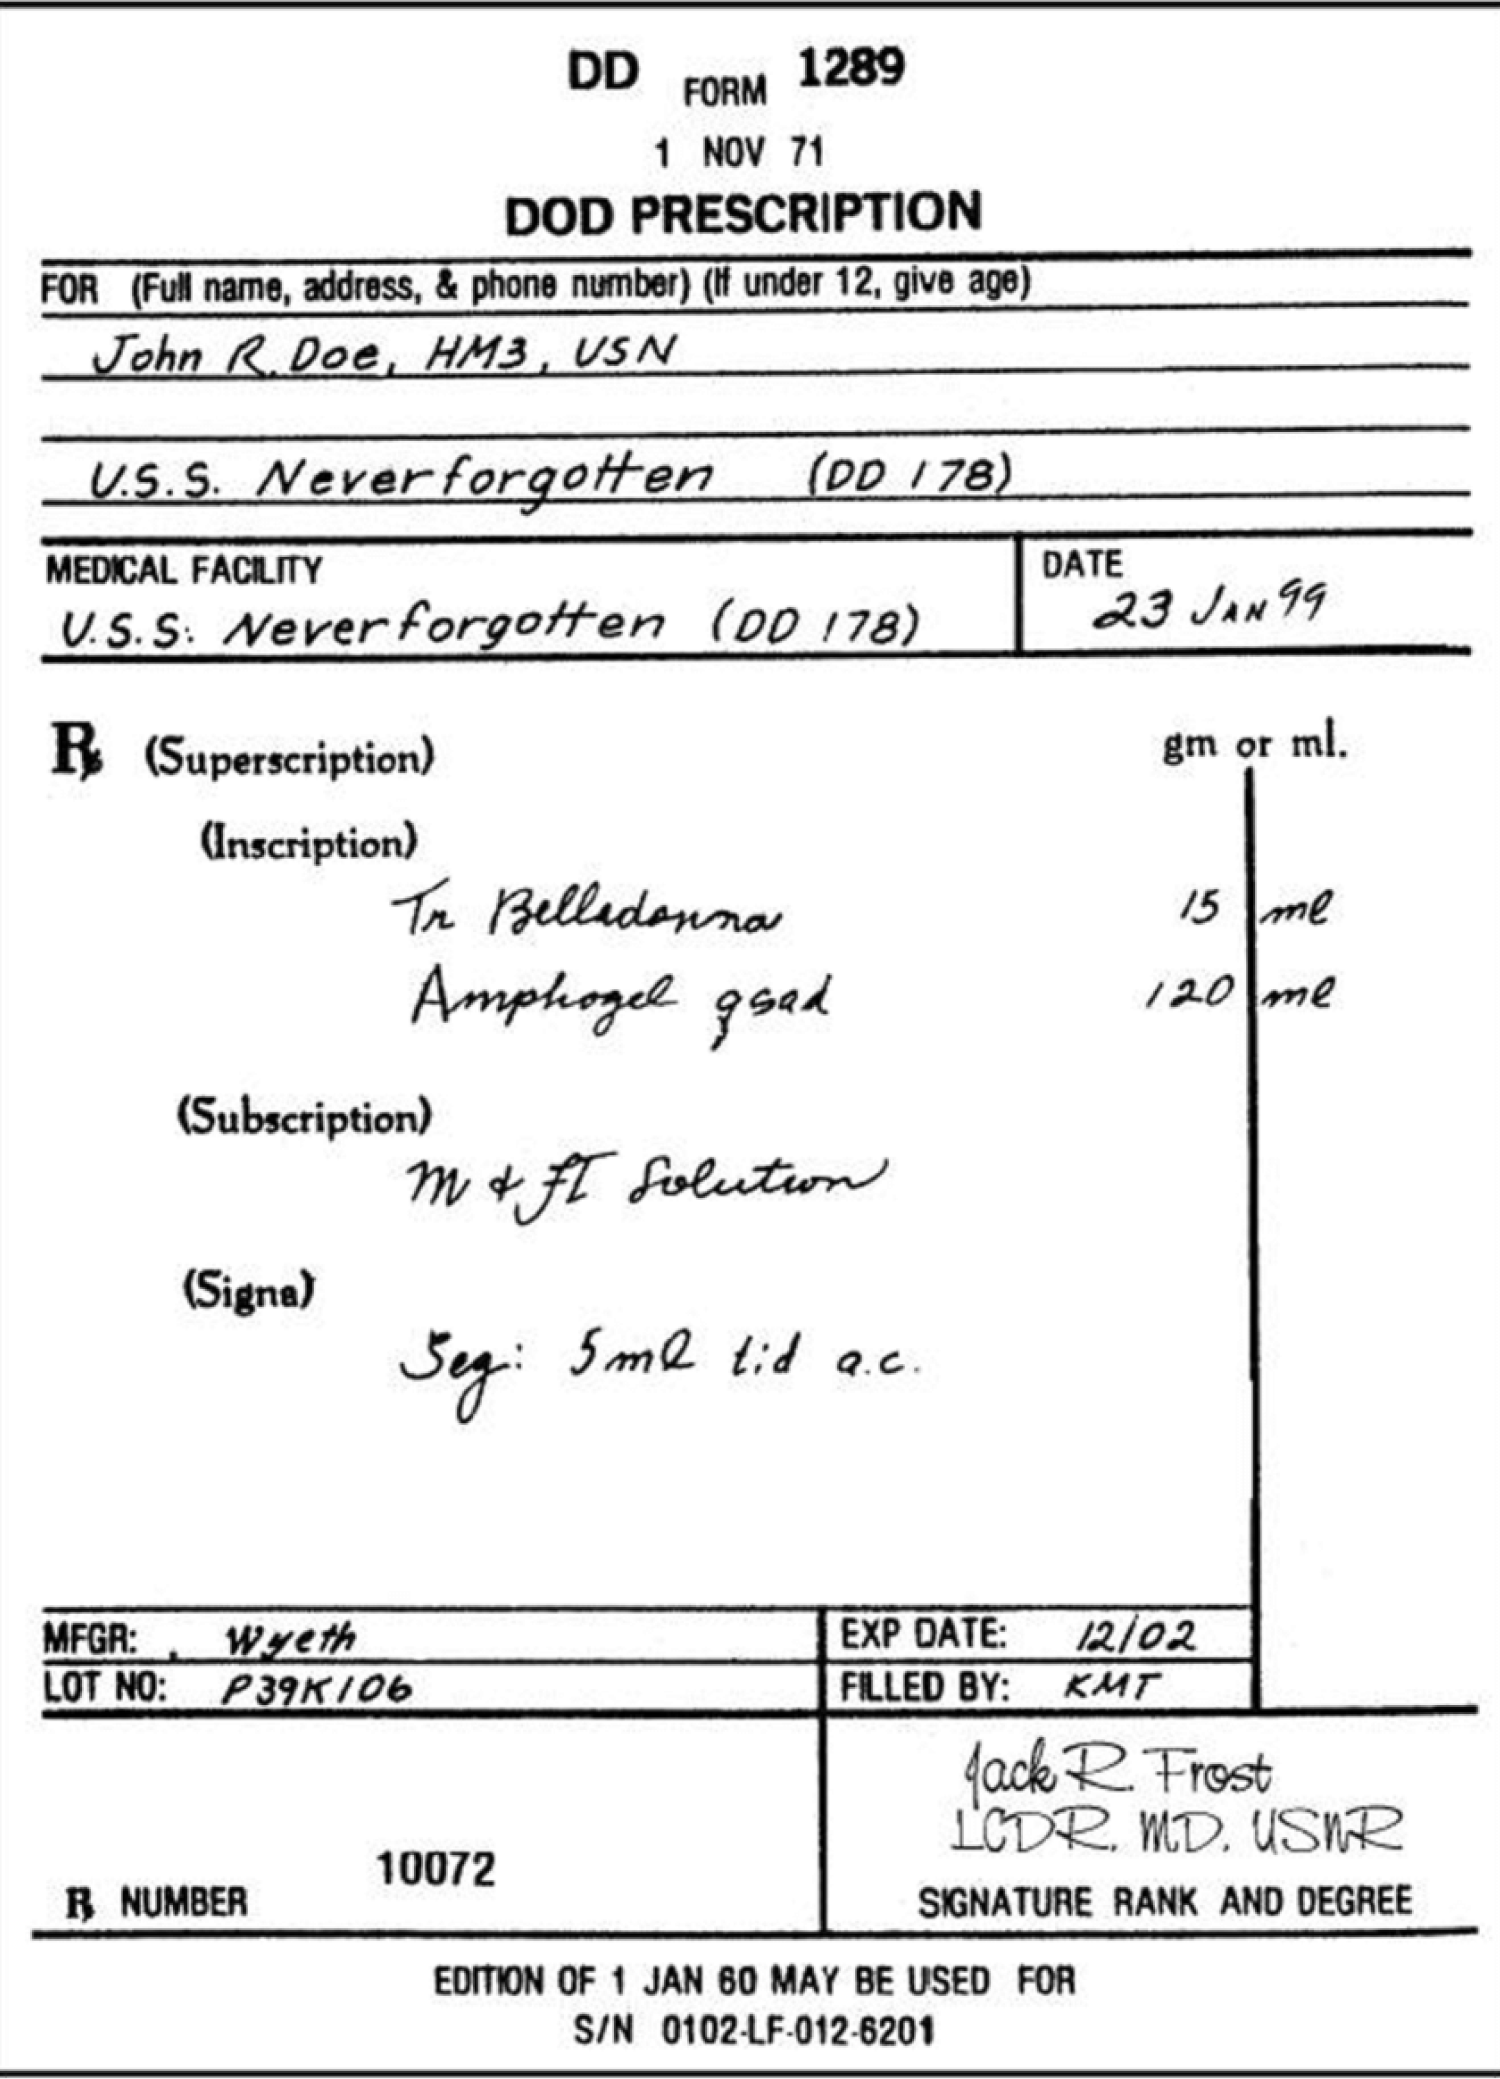 DD FORM 1289
1 NOV 71
DOD PRESCRIPTION
FOR (Full name, address, & phone number) (If under 12, give age)
John R. Doe, HM3, USN
U.S.S. Neverforgotten (DD 178)
MEDICAL FACILITY
U.S.S. Neverforgotten (DD 178)
DATE
23 JAN 99
℞ (Superscription)
gm or ml.
(Inscription)
Tr Belladonna 15 ml
Amphogel qsad 120 ml
(Subscription)
M & FT Solution
(Signa)
Sig: 5ml tid a.c.
MFGR: Wyeth
EXP DATE: 12/02
LOT NO: P39K106
FILLED BY: KMT
10072
℞ NUMBER
Jack R. Frost
LCDR. MD. USNR
SIGNATURE RANK AND DEGREE
EDITION OF 1 JAN 60 MAY BE USED FOR
S/N 0102-LF-012-6201